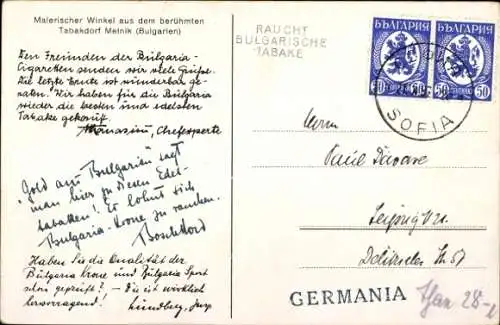 Malerischer Winkel aus dem berühmten
Tabakdorf Melnik (Bulgarien)
Den Freunden der Bulgaria-
Cigaretten senden wir viele Grüße.
Die letzte Ernte ist wunderbar ge-
raten. Wir haben für die Bulgaria
wieder die besten und edelsten
Tabake gekauft
Chefexperte
"Gold aus Bulgarien" sagt
man hier zu diesen Edel-
tabaken! Es lohnt sich
Bulgaria-Krone zu rauchen.
Haben Sie die Qualität der
Bulgaria Krone und Bulgaria Sport
schon geprüft? - Sie ist wirklich
hervorragend!
RAUCHT
BULGARISCHE
TABAKE
БЪЛГАРИЯ
БЪЛГАРИЯ
50
50
50
SOFIA
Herrn
Leipzig
GERMANIA